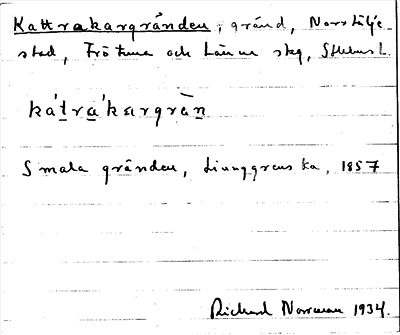 Kattrakargränden, gränd, Norrtälje
stad, Frötuna och Länna skg, Sthlms l.
ka't̲ra̲'kargràn̲
Smala gränden, Ljunggrenska, 1857
Richard Norrman 1934.